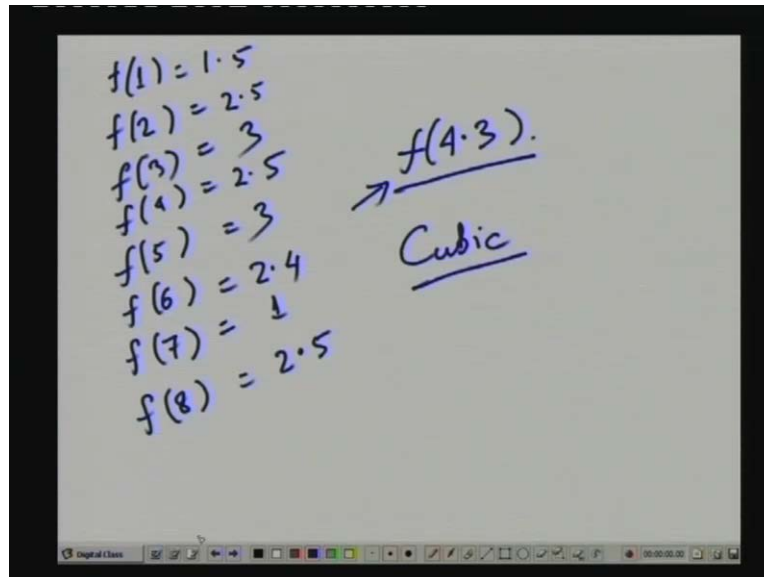 f(1) = 1.5
f(2) = 2.5
f(3) = 3
f(4) = 2.5
f(5) = 3
f(6) = 2.4
f(7) = 1
f(8) = 2.5
f(4.3).
Cubic
Digital Class
00:00:00.00